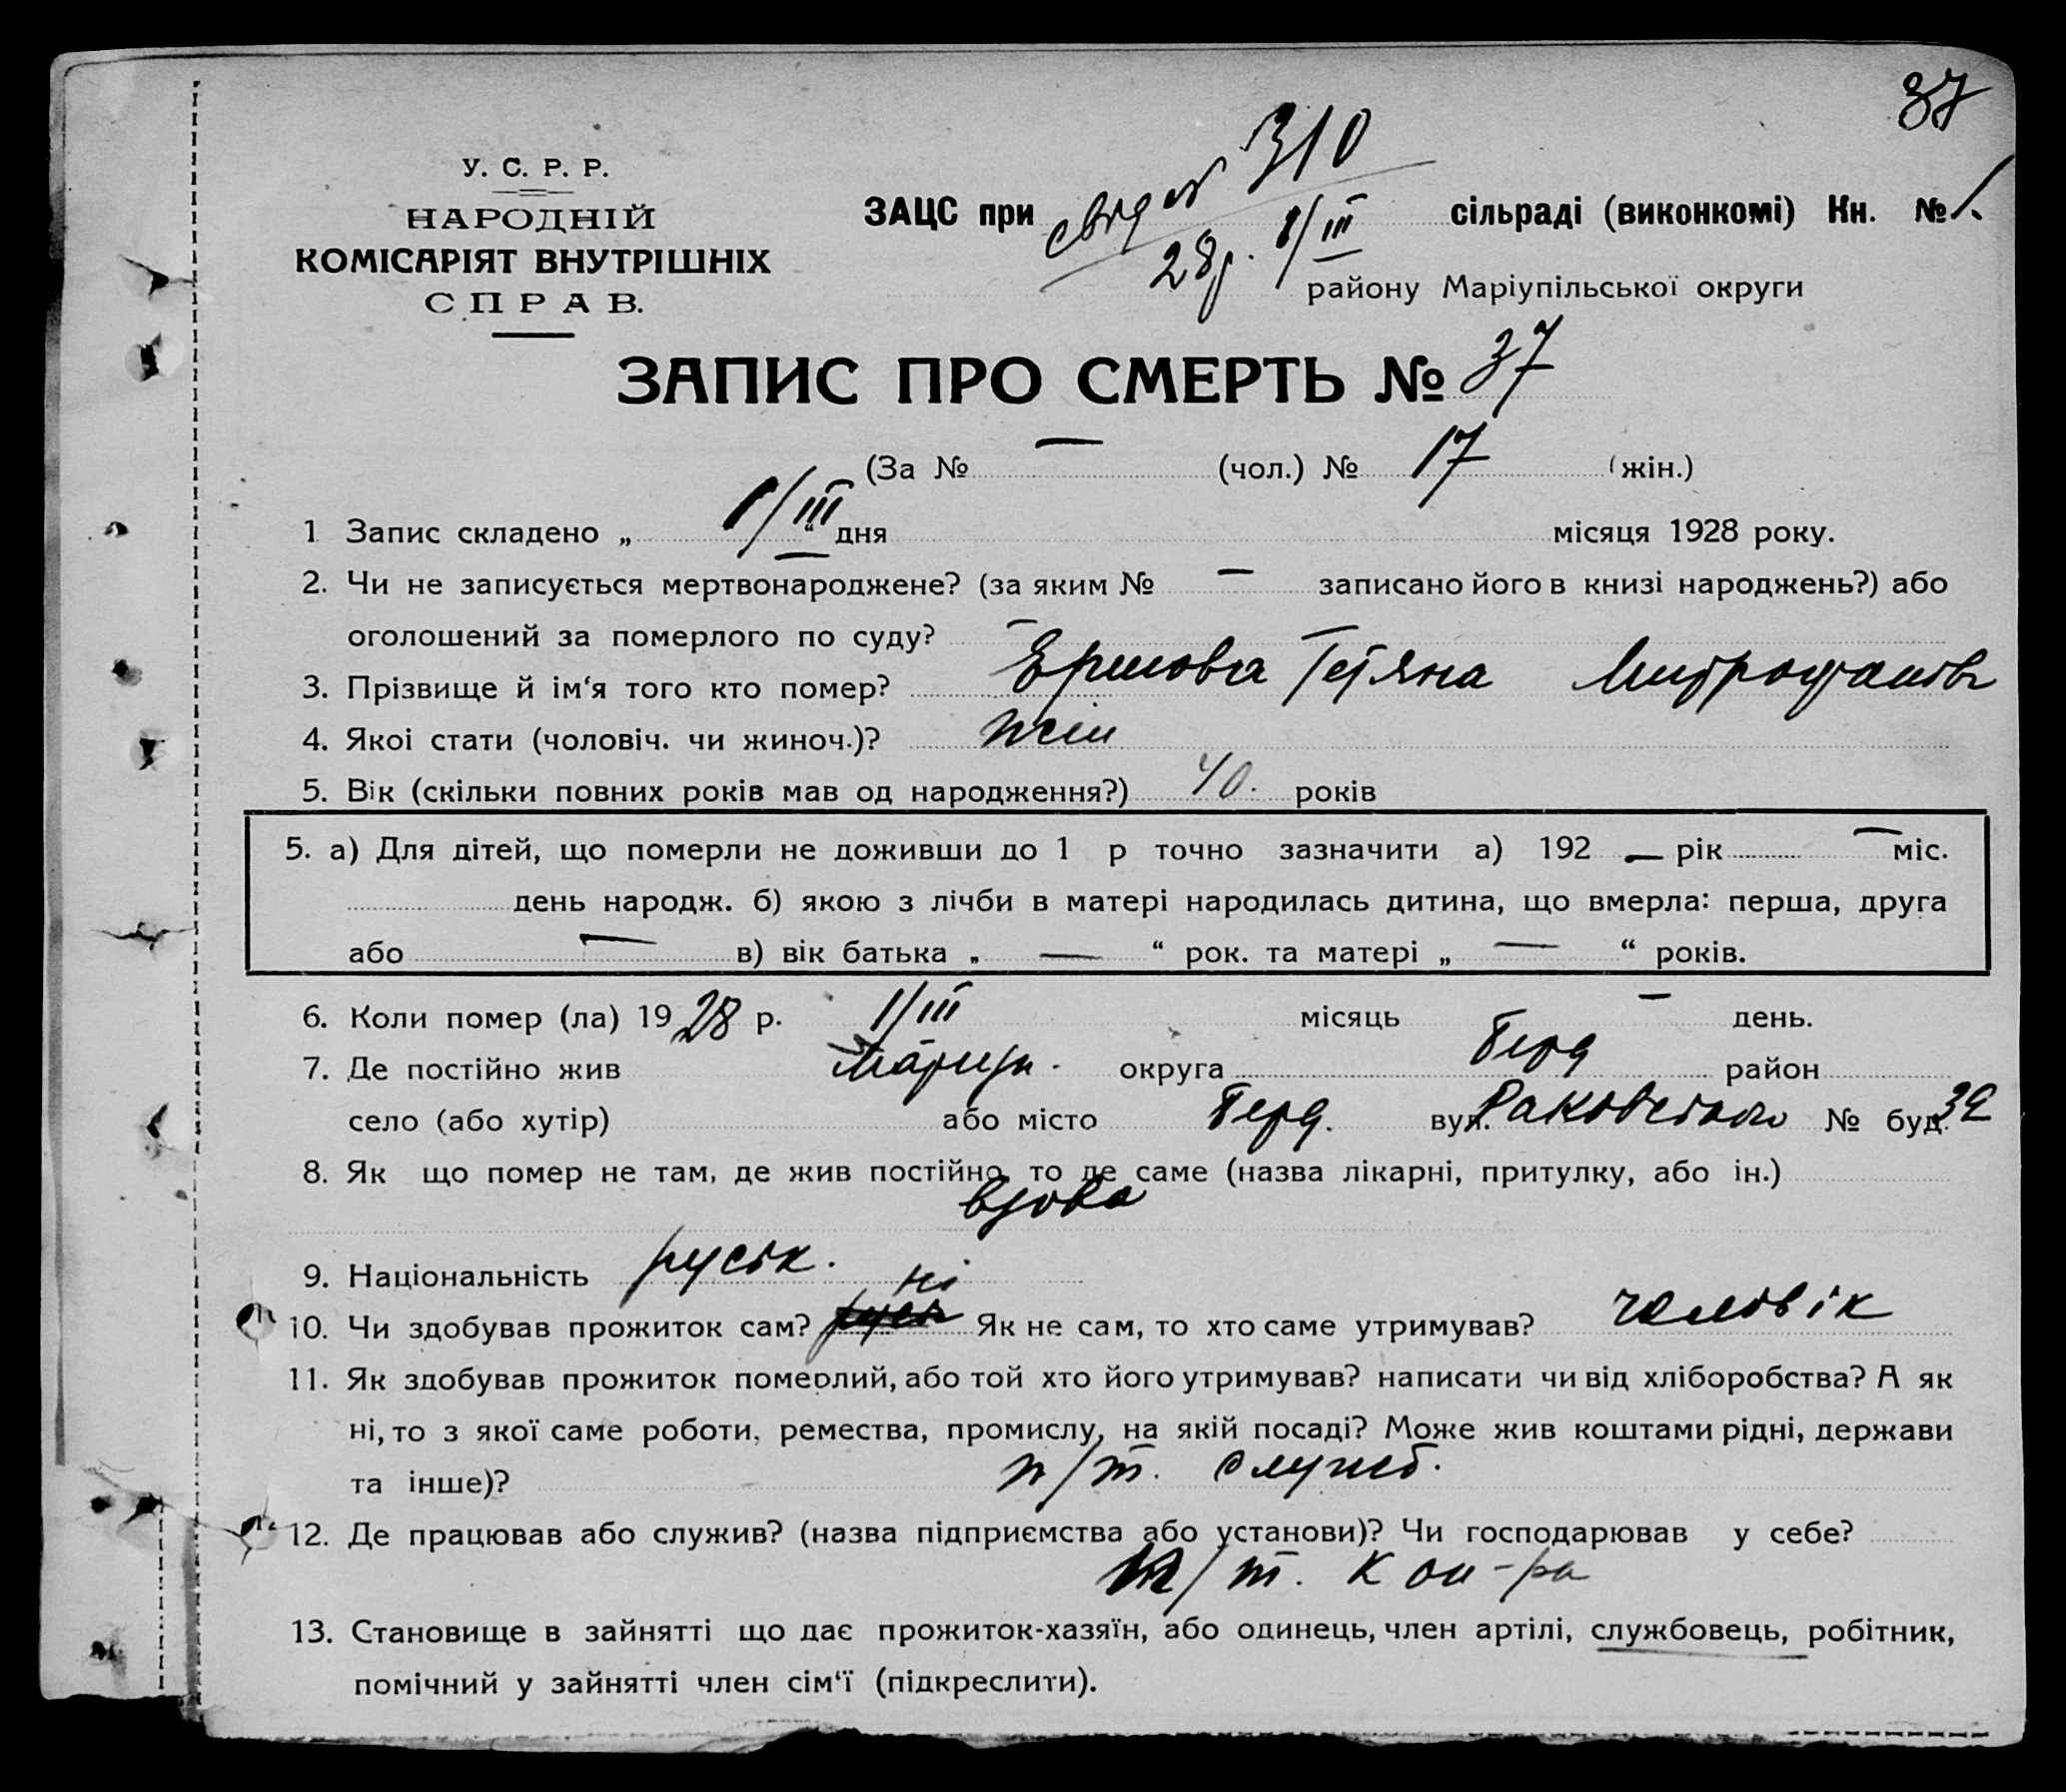 37
У. С. Р. Р.
НАРОДНІЙ
КОМІСАРІЯТ ВНУТРІШНІХ
СПРАВ.
ЗАЦС при свід № 310 сільраді (виконкомі) Кн. № 1.
28р. 1/III району Маріупільської округи
ЗАПИС ПРО СМЕРТЬ № 37
(За № — (чол.) № 17 (жін.)
1 Запис складено „ 1/III “ дня місяця 1928 року.
2. Чи не записується мертвонароджене? (за яким № — записано його в книзі народжень?) або
оголошений за померлого по суду? —
3. Прізвище й ім‘я того хто помер? Ершова Тетяна Митрофанівн
4. Якоі стати (чоловіч. чи жиноч.)? жін
5. Вік (скільки повних років мав од народження?) 40. років
5. а) Для дітей, що померли не доживши до 1 р точно зазначити а) 192 — рік — міс.
день народж. б) якою з лічби в матері народилась дитина, що вмерла: перша, друга
або — в) вік батька „ — “ рок. та матері „ — “ років.
6. Коли помер (ла) 1928 р. 1/III місяць — день.
7. Де постійно жив Маріуп. округа Берд район
село (або хутір) або місто Берд. вул. Раковського № буд. 32
8. Як що помер не там, де жив постійно, то де саме (назва лікарні, притулку, або ін.)
вдова
9. Національність руськ.
10. Чи здобував прожиток сам? ні Як не сам, то хто саме утримував? чоловік
11. Як здобував прожиток померлий, або той хто його утримував? написати чи від хліборобства? А як
ні, то з якої саме роботи, ремества, промислу, на якій посаді? Може жив коштами рідні, держави
та інше)? п/т. служб.
12. Де працював або служив? (назва підприємства або установи)? Чи господарював у себе?
п/т. кон-ра
13. Становище в зайнятті що дає прожиток-хазяїн, або одинець, член артілі, службовець, робітник,
помічний у зайнятті член сім‘ї (підкреслити).